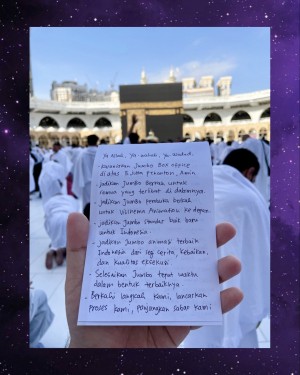 Ya Allah, ya wahab, ya wadud.
- Selamatkan Jumbo Box office
di atas 3 juta penonton, Amin.
- Jadikan Jumbo berkah untuk
semua yang terlibat di dalamnya.
- Jadikan Jumbo pembuka berkah
untuk Visinema Animation ke depan.
- Jadikan Jumbo standar baik baru
untuk Indonesia.
- Jadikan Jumbo animasi terbaik
Indonesia dari segi cerita, kebaikan,
dan kualitas eksekusi
- Selesaikan Jumbo tepat waktu
dalam bentuk terbaiknya
- Berkahi langkah kami, lancarkan
proses kami, panjangkan sabar kami